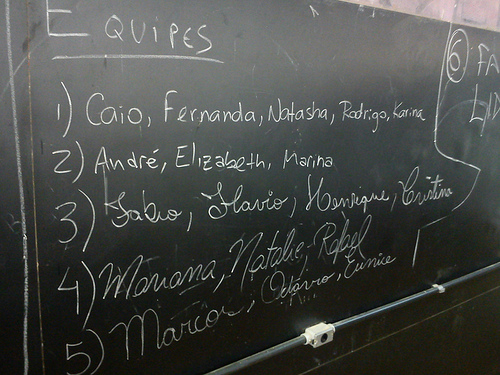 EQUIPES
1) Caio, Fernanda, Natasha, Rodrigo, Karina
2) André, Elizabeth, Marina
3) Fabio, Flavio, Henrique, Cristina
4) Mariana, Natalie, Rafael
5) Marcos, Odavio, Eunice
6) FA
LID